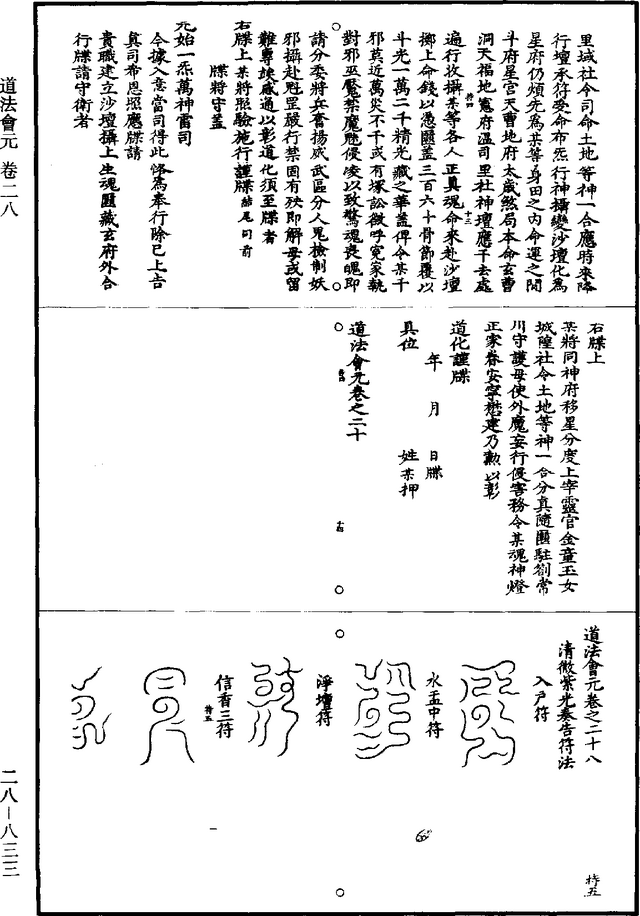 里域社令司命土地等神一合應時來降
行壇承符受命布炁行神攝變沙壇化為
星府仍煩先為某等身田之內命運之間
斗府星宮天曹地府太歲煞局本命玄曹
洞天福地冤府溫司里社神壇應干去處
遍行收攝某等各人正真魂命來赴沙壇
擲上命錢以憑匱蓋三百六十骨節覆以
斗光一萬二千精光藏之華蓋俾令某千
邪莫近萬災不干或有塚訟徵呼冤家執
對邪巫魘禁魔魅侵凌以致驚魂喪魄即
請分委將兵奮揚威武區分人鬼檢制妖
邪攝赴魁罡嚴行禁固有殃即解毋或留
難專俟感通以彰道化須至牒者
右牒上某將照驗施行謹牒結尾同前
牒將守蓋
元始一炁萬神雷司
今據入意當司得此恪為奉行除已上告
真司希恩照應牒請
貴職建立沙壇攝上生魂匱藏玄府外合
行牒請守衛者
右牒上
某將同神府移星分度上宰靈官金童玉女
城隍社令土地等神一合分真隨匱駐劄常
川守護毋使外魔妄行侵害務令某魂神燈
正家眷安寧懋建乃勳以彰
道化謹牒
年 月 日牒
具位 姓某押
道法會元卷之二十
道法會元卷之二十八
清微紫光奏告符法
入戶符
水盂中符
淨壇符
信香三符
道法會元 卷二八
二八—八三三